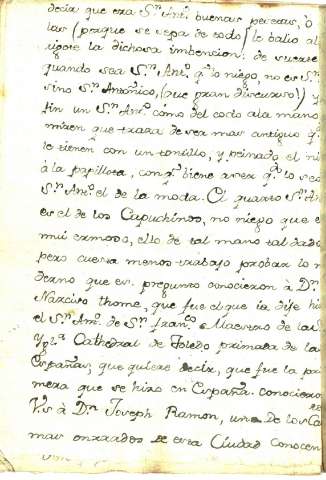 decir que era Sn. Anto. buenas pesetas, o
las (porque se sepa de todo) le balio al
sigote la dichosa imbencion: de suerte
quando sea Sn. Anto. qe. lo niego, no es Sn.
sino Sn. Antonico, (que gran discurso!) y
fin un Sn. Anto. cómo del codo ala mano
miren que traza de sea mas antiguo qe.
le tienen con un tontillo, y peinado el ni
à la papillota, con qe. biene a ser qe. lo sea
Sn. Anto. el de la moda. El quarto Sn. An
es el de los Capuchinos, no niego que e
mui ermoso, ello de tal mano tal dado
pero cuesta menos trabajo probar lo m
derno que es. pregunto conocieron à Dn.
Narciso thome, que fue el que
el Sn. Anto. de Sn. Franco. Maestro de la
Ygla. Cathedral de Toledo primada de la
Españas, que quiere decir, que fue la pri
mera que se hizo en España. conocieron
Vs à Dn. Joseph Ramon, uno de los Ca
mas onrrados de esta Ciudad conocen